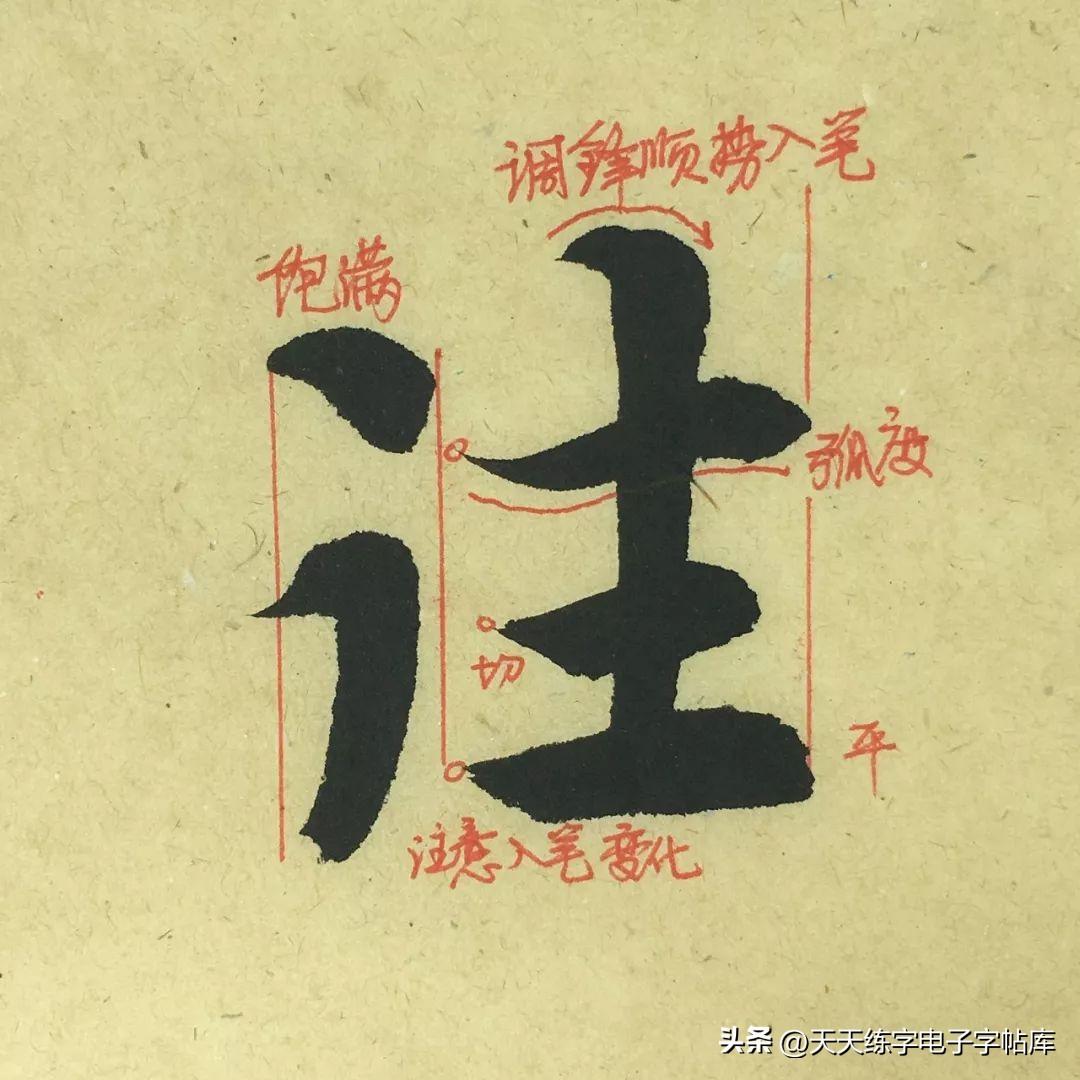 调鋒顺势入笔
饱满
往
弧度
切
平
注意入笔变化
头条 @天天练字电子字帖库